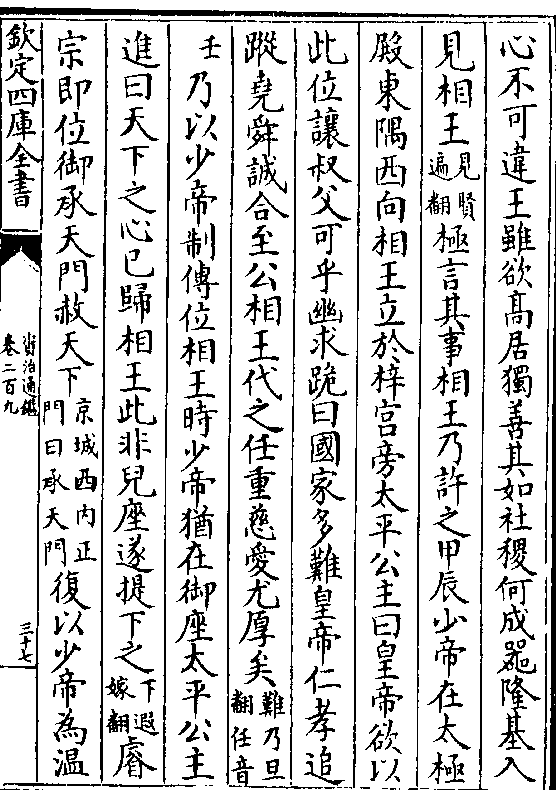 心不可違王雖欲髙居獨善其如社稷何成器隆基入
見相王見賢遍翻極言其事相王乃許之甲辰少帝在太極
殿東隅西向相王立於梓宫旁太平公主曰皇帝欲以
此位讓叔父可乎幽求跪曰國家多難皇帝仁孝追
蹤堯舜誠合至公相王代之任重慈愛尤厚矣難乃旦翻任音
壬乃以少帝制傳位相王時少帝猶在御座太平公主
進曰天下之心已歸相王此非兒座遂提下之下遐嫁翻睿
宗即位御承天門赦天下京城西内正門曰承天門復以少帝為温
欽定四庫全書
資治通鑑
卷二百九
三十七